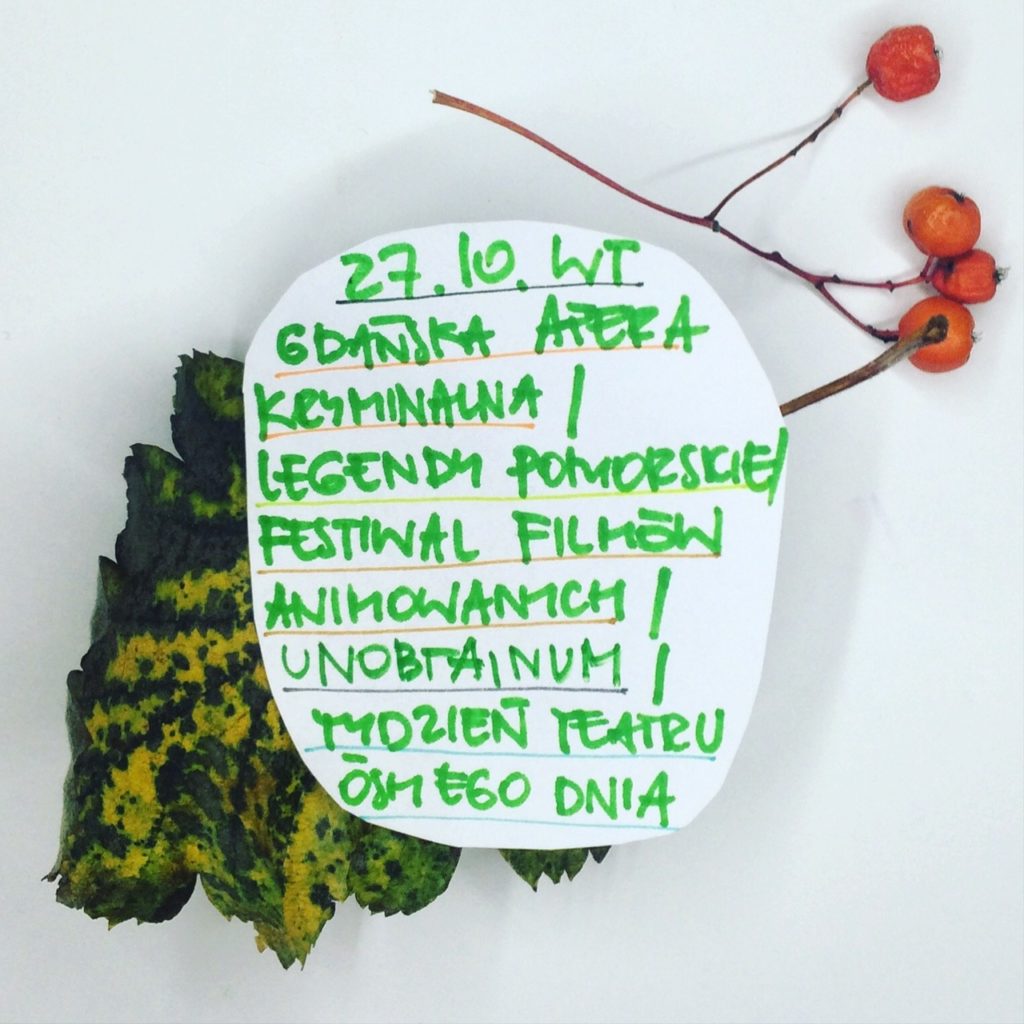 27.10. WT
GDAŃSKA AFERA
KRYMINALNA /
LEGENDY POMORSKIE/
FESTIWAL FILMÓW
ANIMOWANYCH /
UNOBTAINUM /
TYDZIEŃ TEATRU
ÓSMEGO DNIA